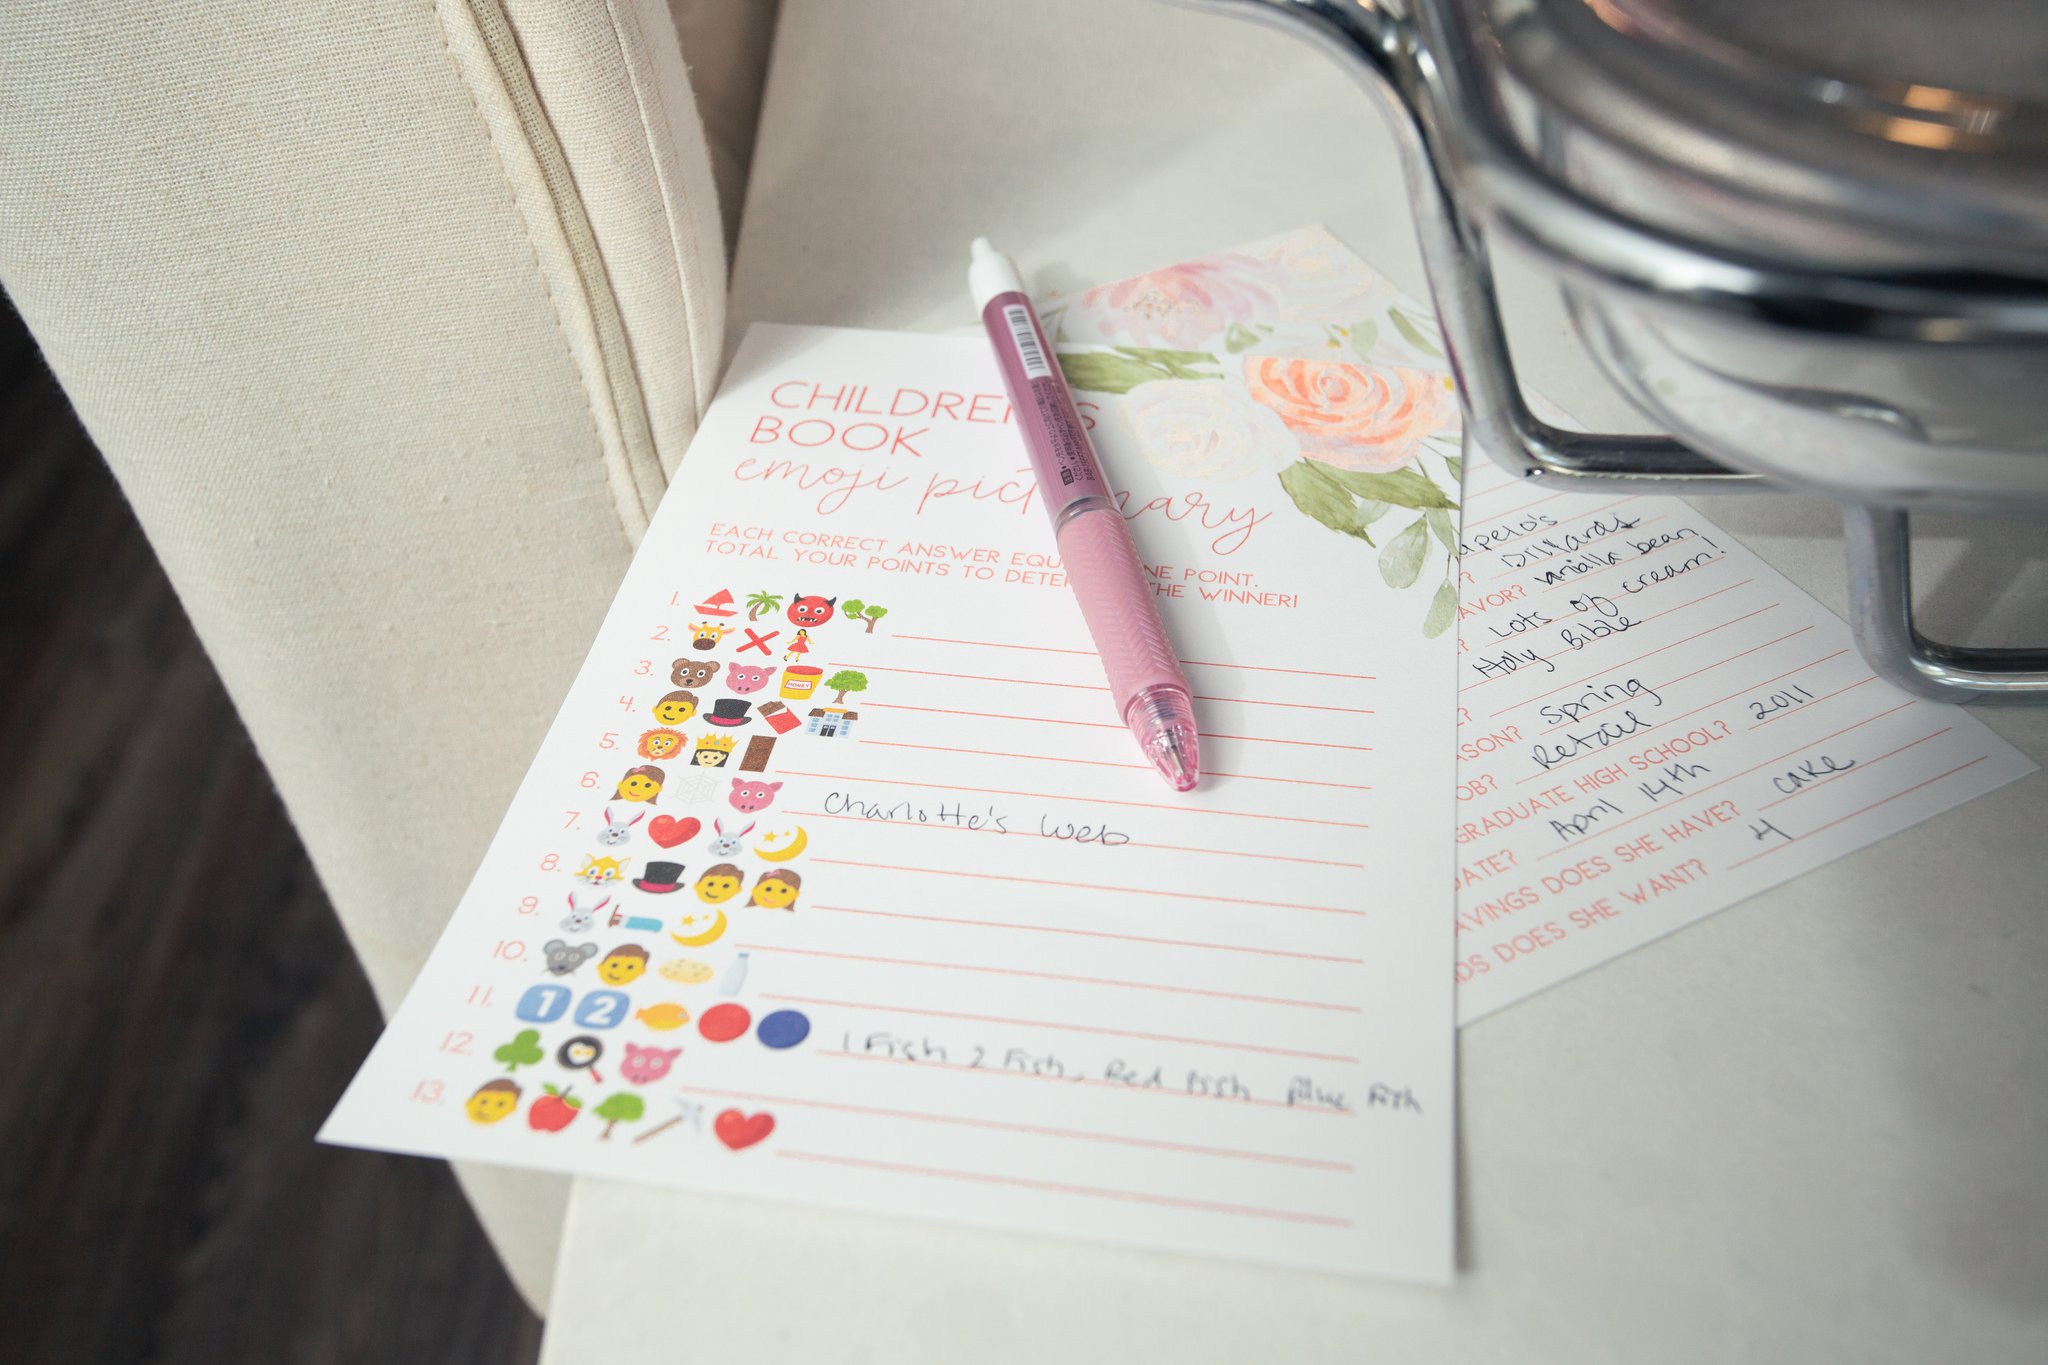 CHILDREN'S
BOOK
emoji pictionary
EACH CORRECT ANSWER EQUALS ONE POINT.
TOTAL YOUR POINTS TO DETERMINE THE WINNER!
1.
2.
3. HONEY
4.
5.
6. Charlotte's Web
7.
8.
9.
10.
11. 1 2 1 Fish 2 Fish, Red Fish Blue Fish
12.
13.
? Dillards
AVOR? Vanilla bean
? Lots of cream!
? Holy Bible
ASON? Spring
OB? Retail
GRADUATE HIGH SCHOOL? 2011
DATE? April 14th
AVINGS DOES SHE HAVE? cake
DS DOES SHE WANT? 4